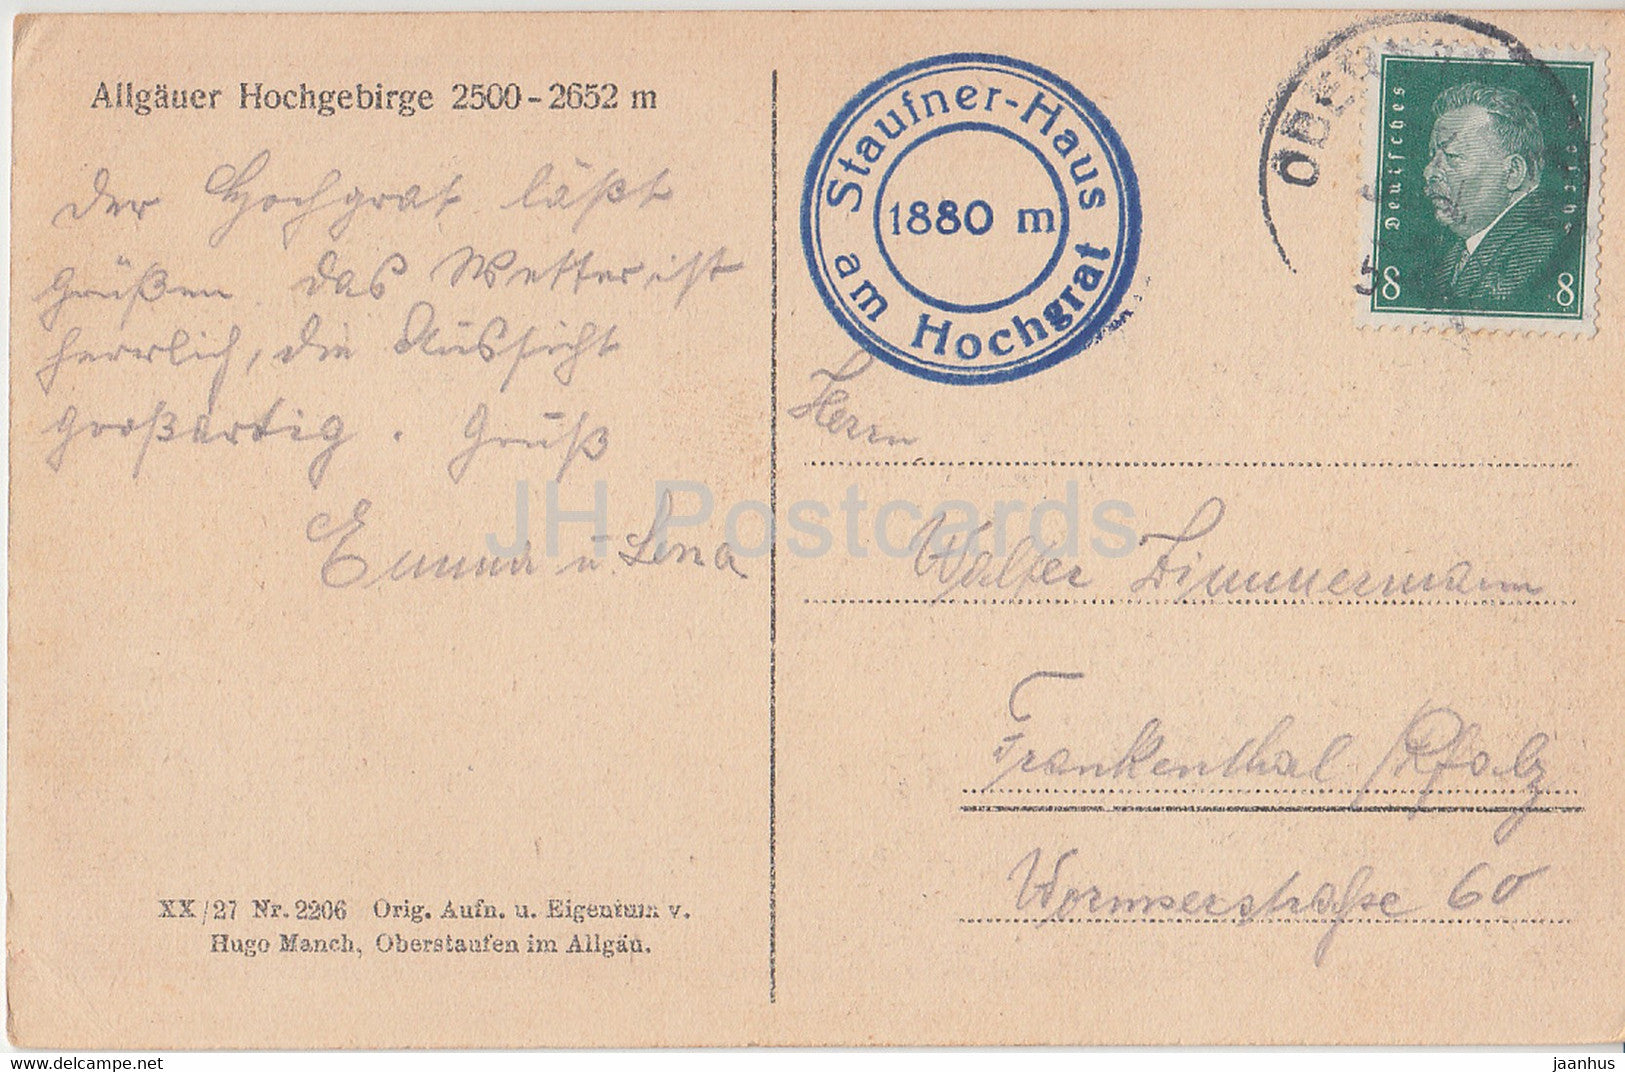 Allgäuer Hochgebirge 2500-2652 m
Der Hochgrat läßt
grüßen. Das Wetter ist
herrlich, die Aussicht
großartig. Gruß
Emma u. Lena
XX/27 Nr. 2206 Orig. Aufn. u. Eigentum v.
Hugo Manch, Oberstaufen im Allgäu.
Staufner-Haus
1880 m
am Hochgrat
Deutsches
8 8
Herrn
Walter Zimmermann
Frankenthal /Pfalz
Wormserstraße 60
JH Postcards
www.delcampe.net
jaanhus